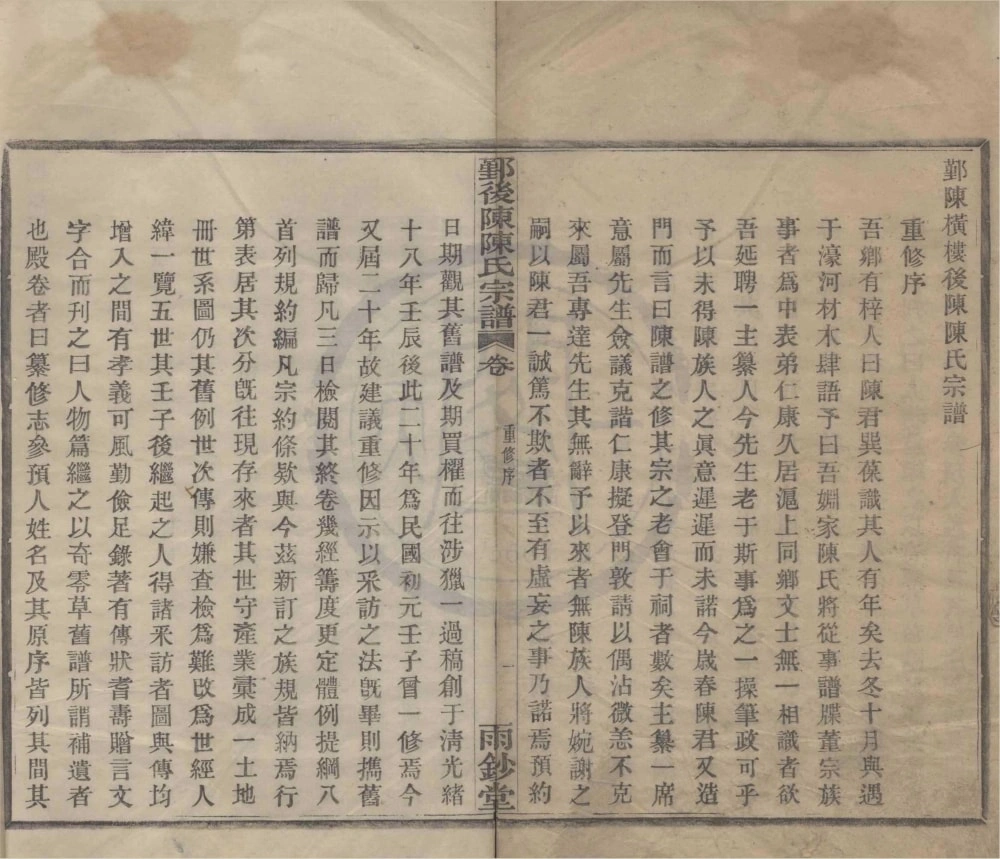 鄞陳橫樓後陳陳氏宗譜
重修序
吾鄉有梓人曰陳君巽葆識其人有年矣去冬十月與遇
于濠河材木肆語予曰吾婣家陳氏將從事譜牒董宗族
事者爲中表弟仁康久居滬上同鄉文士無一相識者欲
吾延聘一主纂人今先生老于斯事爲之一操筆政可乎
予以未得陳族人之眞意遲遲而未諾今歲春陳君又造
門而言曰陳譜之修其宗之老會于祠者數矣主纂一席
意屬先生僉議克諧仁康擬登門敦請以偶沾微恙不克
來屬吾專達先生其無辭予以來者無陳族人將婉謝之
嗣以陳君一誠篤不欺者不至有虛妄之事乃諾焉預約
鄞後陳陳氏宗譜
卷
重修序
一
雨鈔堂
日期觀其舊譜及期買櫂而往涉獵一過稿創于清光緒
十八年壬辰後此二十年爲民國初元壬子曾一修焉今
又屆二十年故建議重修因示以釆訪之法旣畢則攜舊
譜而歸凡三日檢閱其終卷幾經籌度更定體例提綱八
首列規約編凡宗約條欵與今茲新訂之族規皆納焉行
第表居其次分旣往現存來者其世守產業彙成一土地
冊世系圖仍其舊例世次傳則嫌查檢爲難改爲世經人
緯一覽五世其壬子後繼起之人得諸釆訪者圖與傳均
增入之間有孝義可風勤儉足錄著有傳狀耆壽贈言文
字合而刊之曰人物篇繼之以奇零草舊譜所謂補遺者
也殿卷者曰纂修志參預人姓名及其原序皆列其間其